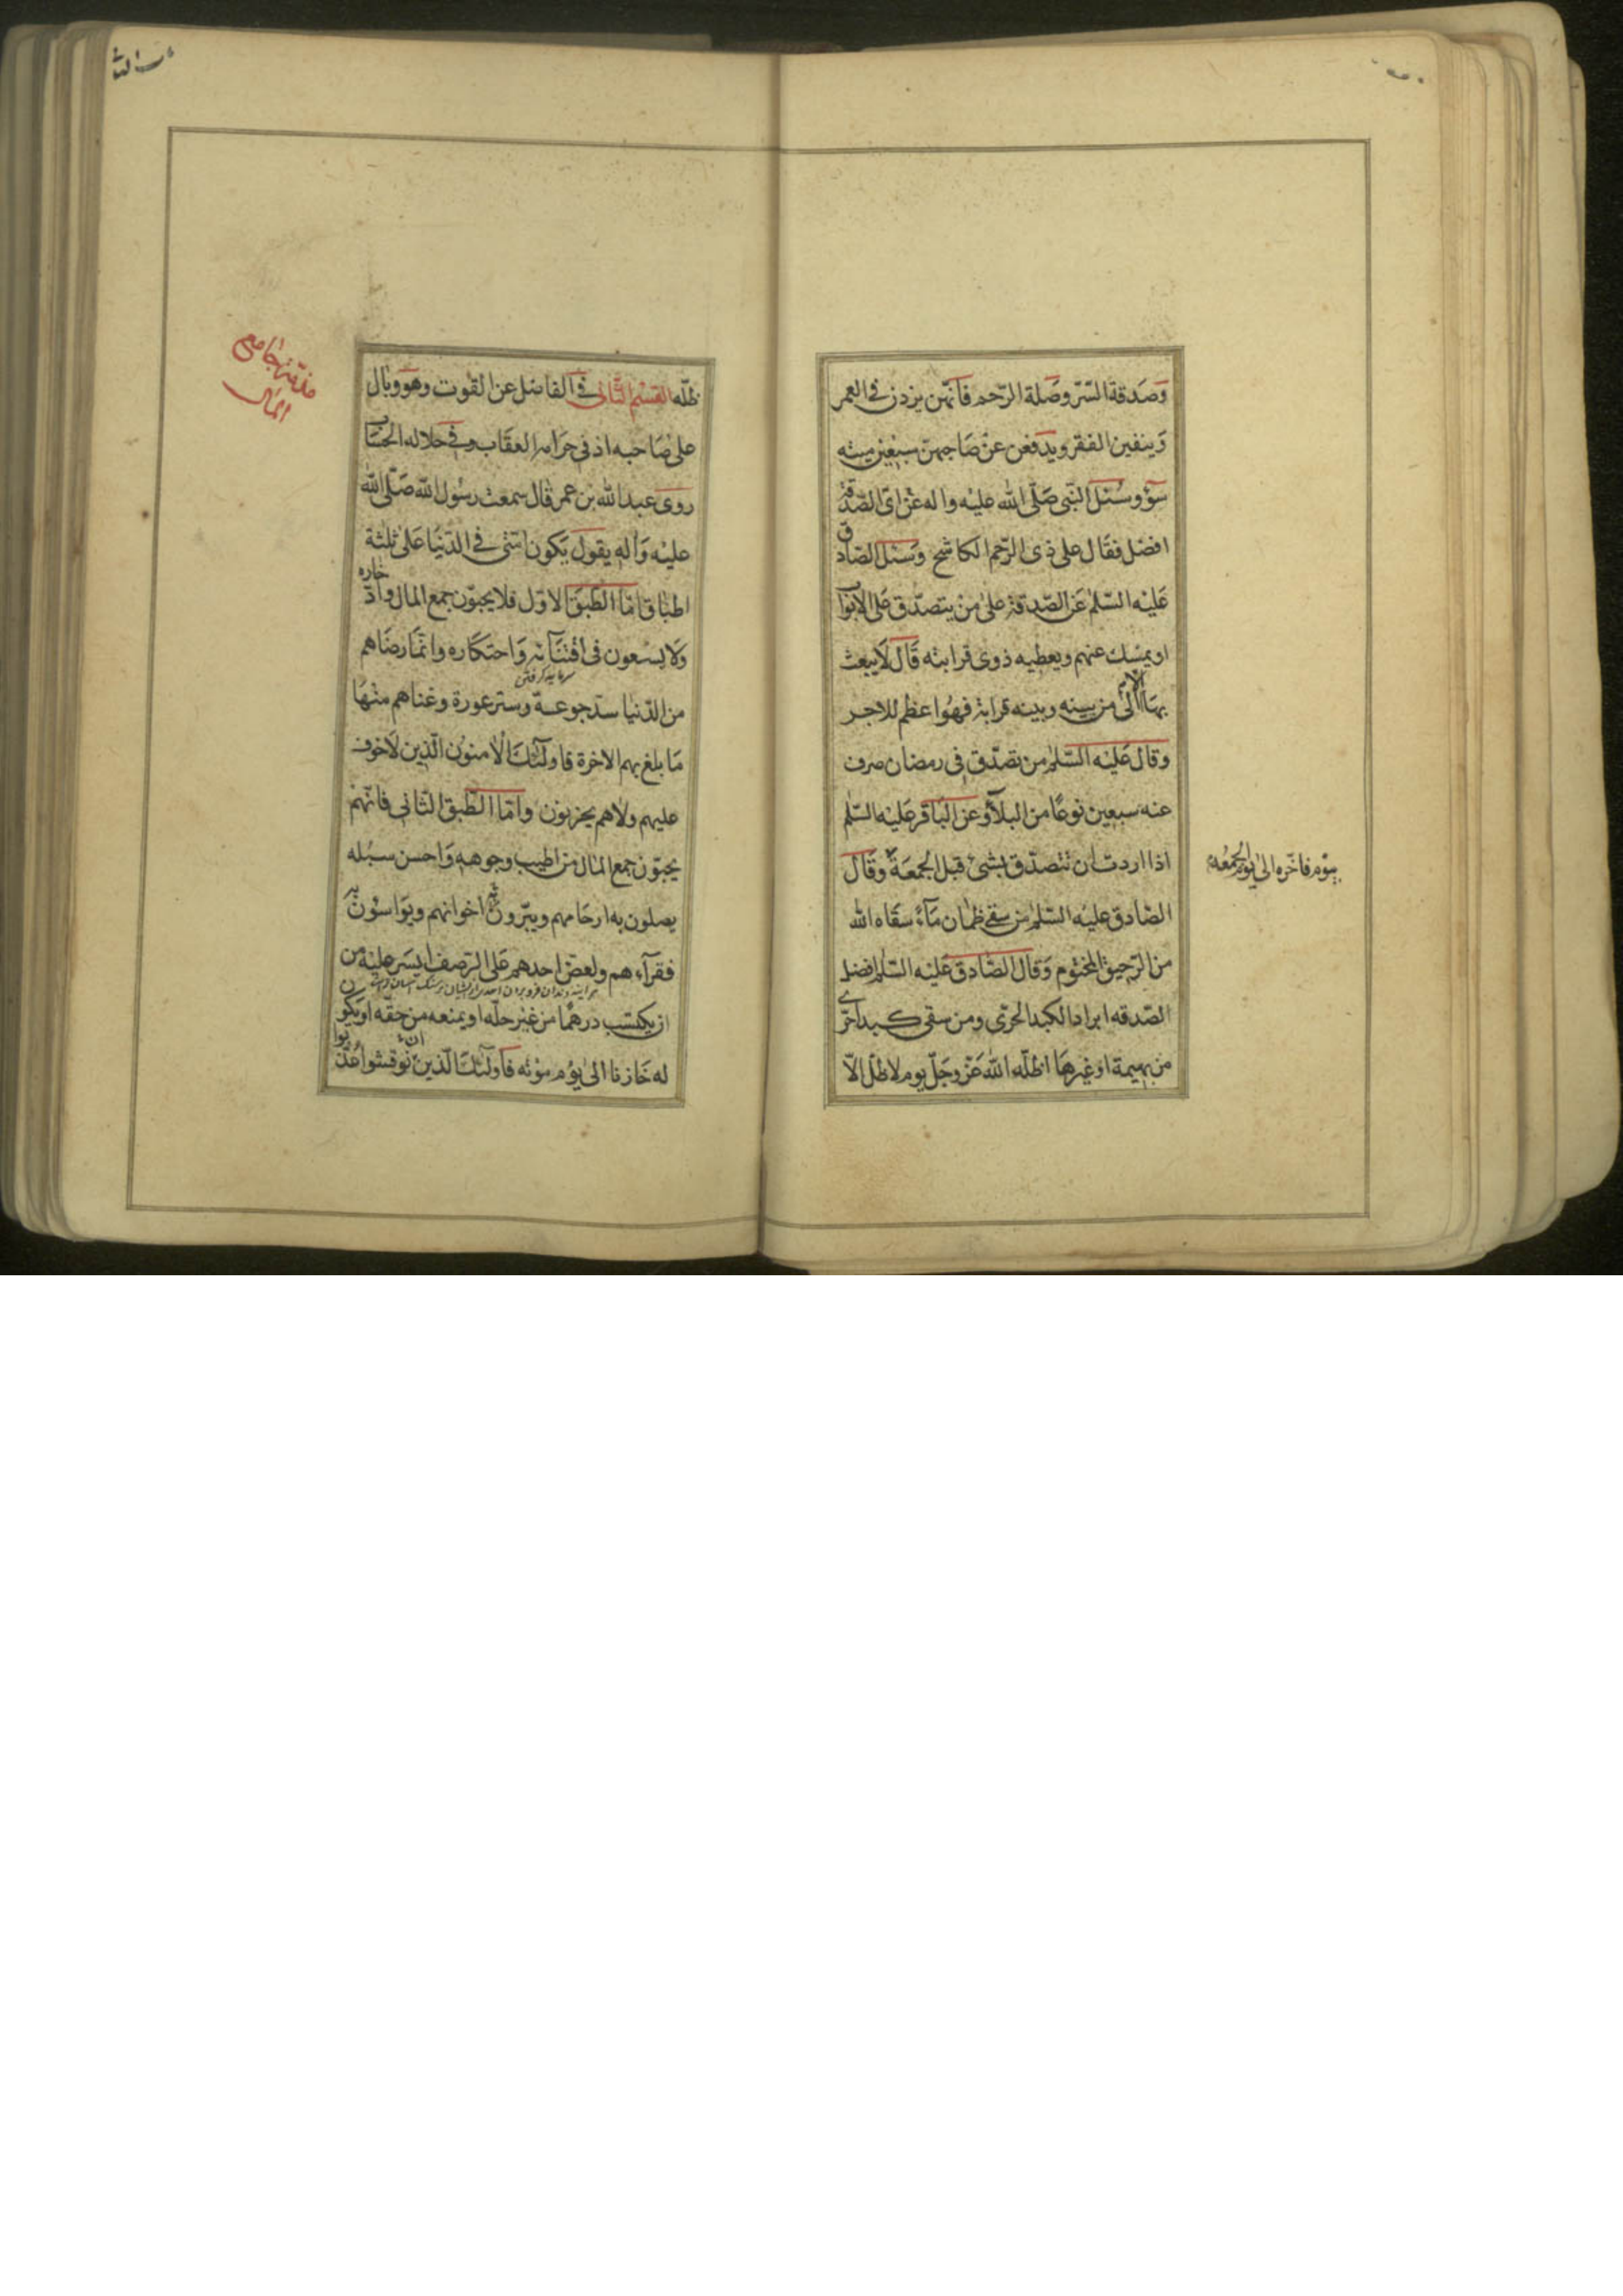 وصدقة السّرّ وصلة الرّحم فانّهن يزدن فى العمر
وينفين الفقر ويدفعن عن صاحبهنّ سبعين ميتة
سؤ وسئل النّبى صلّى الله عليه واله عن اىّ الصّدقة
افضل فقال على ذى الرّحم الكاشح وسئل الصّادق
عليه السّلم عن الصّدقة على من يتصدّق على الابواب
او يمسك عنهم ويعطيه ذوى قرابته قال لا يبعث
بها الّا الى من بينه وبينه قرابة فهو اعظم للاجر
وقال عليه السّلم من تصدّق فى رمضان صرف
عنه سبعين نوعًا من البلاء وعن الباقر عليه السّلم
اذا اردت ان تتصدّق بشئ قبل الجمعة وقال
بيوم فاخّره الى يوم الجمعه
الصّادق عليه السّلم من سقى ظمان مآءً سقاه الله
من الرّحيق المختوم وقال الصّادق عليه السّلم افضل
الصّدقه ابراد الكبد الحرّى ومن سقى كبدا حرّى
من بهيمة او غيرها اظلّه الله عزّ وجلّ يوم لا ظلّ الّا
ظلّه القسم الثّانى فى الفاضل عن القوت وهو وبال
على صاحبه اذ فى حرامه العقاب وفى حلاله الحساب
روى عبد الله بن عمر قال سمعت رسول الله صلّى الله
عليه وآله يقول يكون امّتى فى الدّنيا على ثلثة
اطباق امّا الطّبق الاوّل فلا يحبّون جمع المال وادّخاره
ولا يسعون فى اقتنآئه واحتكاره وانّما رضاهم
سرمايه گرفتن
من الدّنيا سدّ جوعة وستر عورة وغناهم منها
ما بلغ بهم الاخرة فاولئك الامنون الّذين لا خوف
عليهم ولا هم يحزنون وامّا الطّبق الثّانى فانّهم
يحبّون جمع المال من اطيب وجوهه واحسن سبله
يصلون به ارحامهم ويبرّون به اخوانهم ويواسون به
فقرآءهم ولعضّ احدهم على الرّصف ايسر عليه من
ان يكتسب درهمًا من غير حلّه او يمنعه من حقّه او يكون
له خازنا الى يوم موته فاولئك الّذين ان نوقشوا عذّبوا
مذمّة جامعى
المال